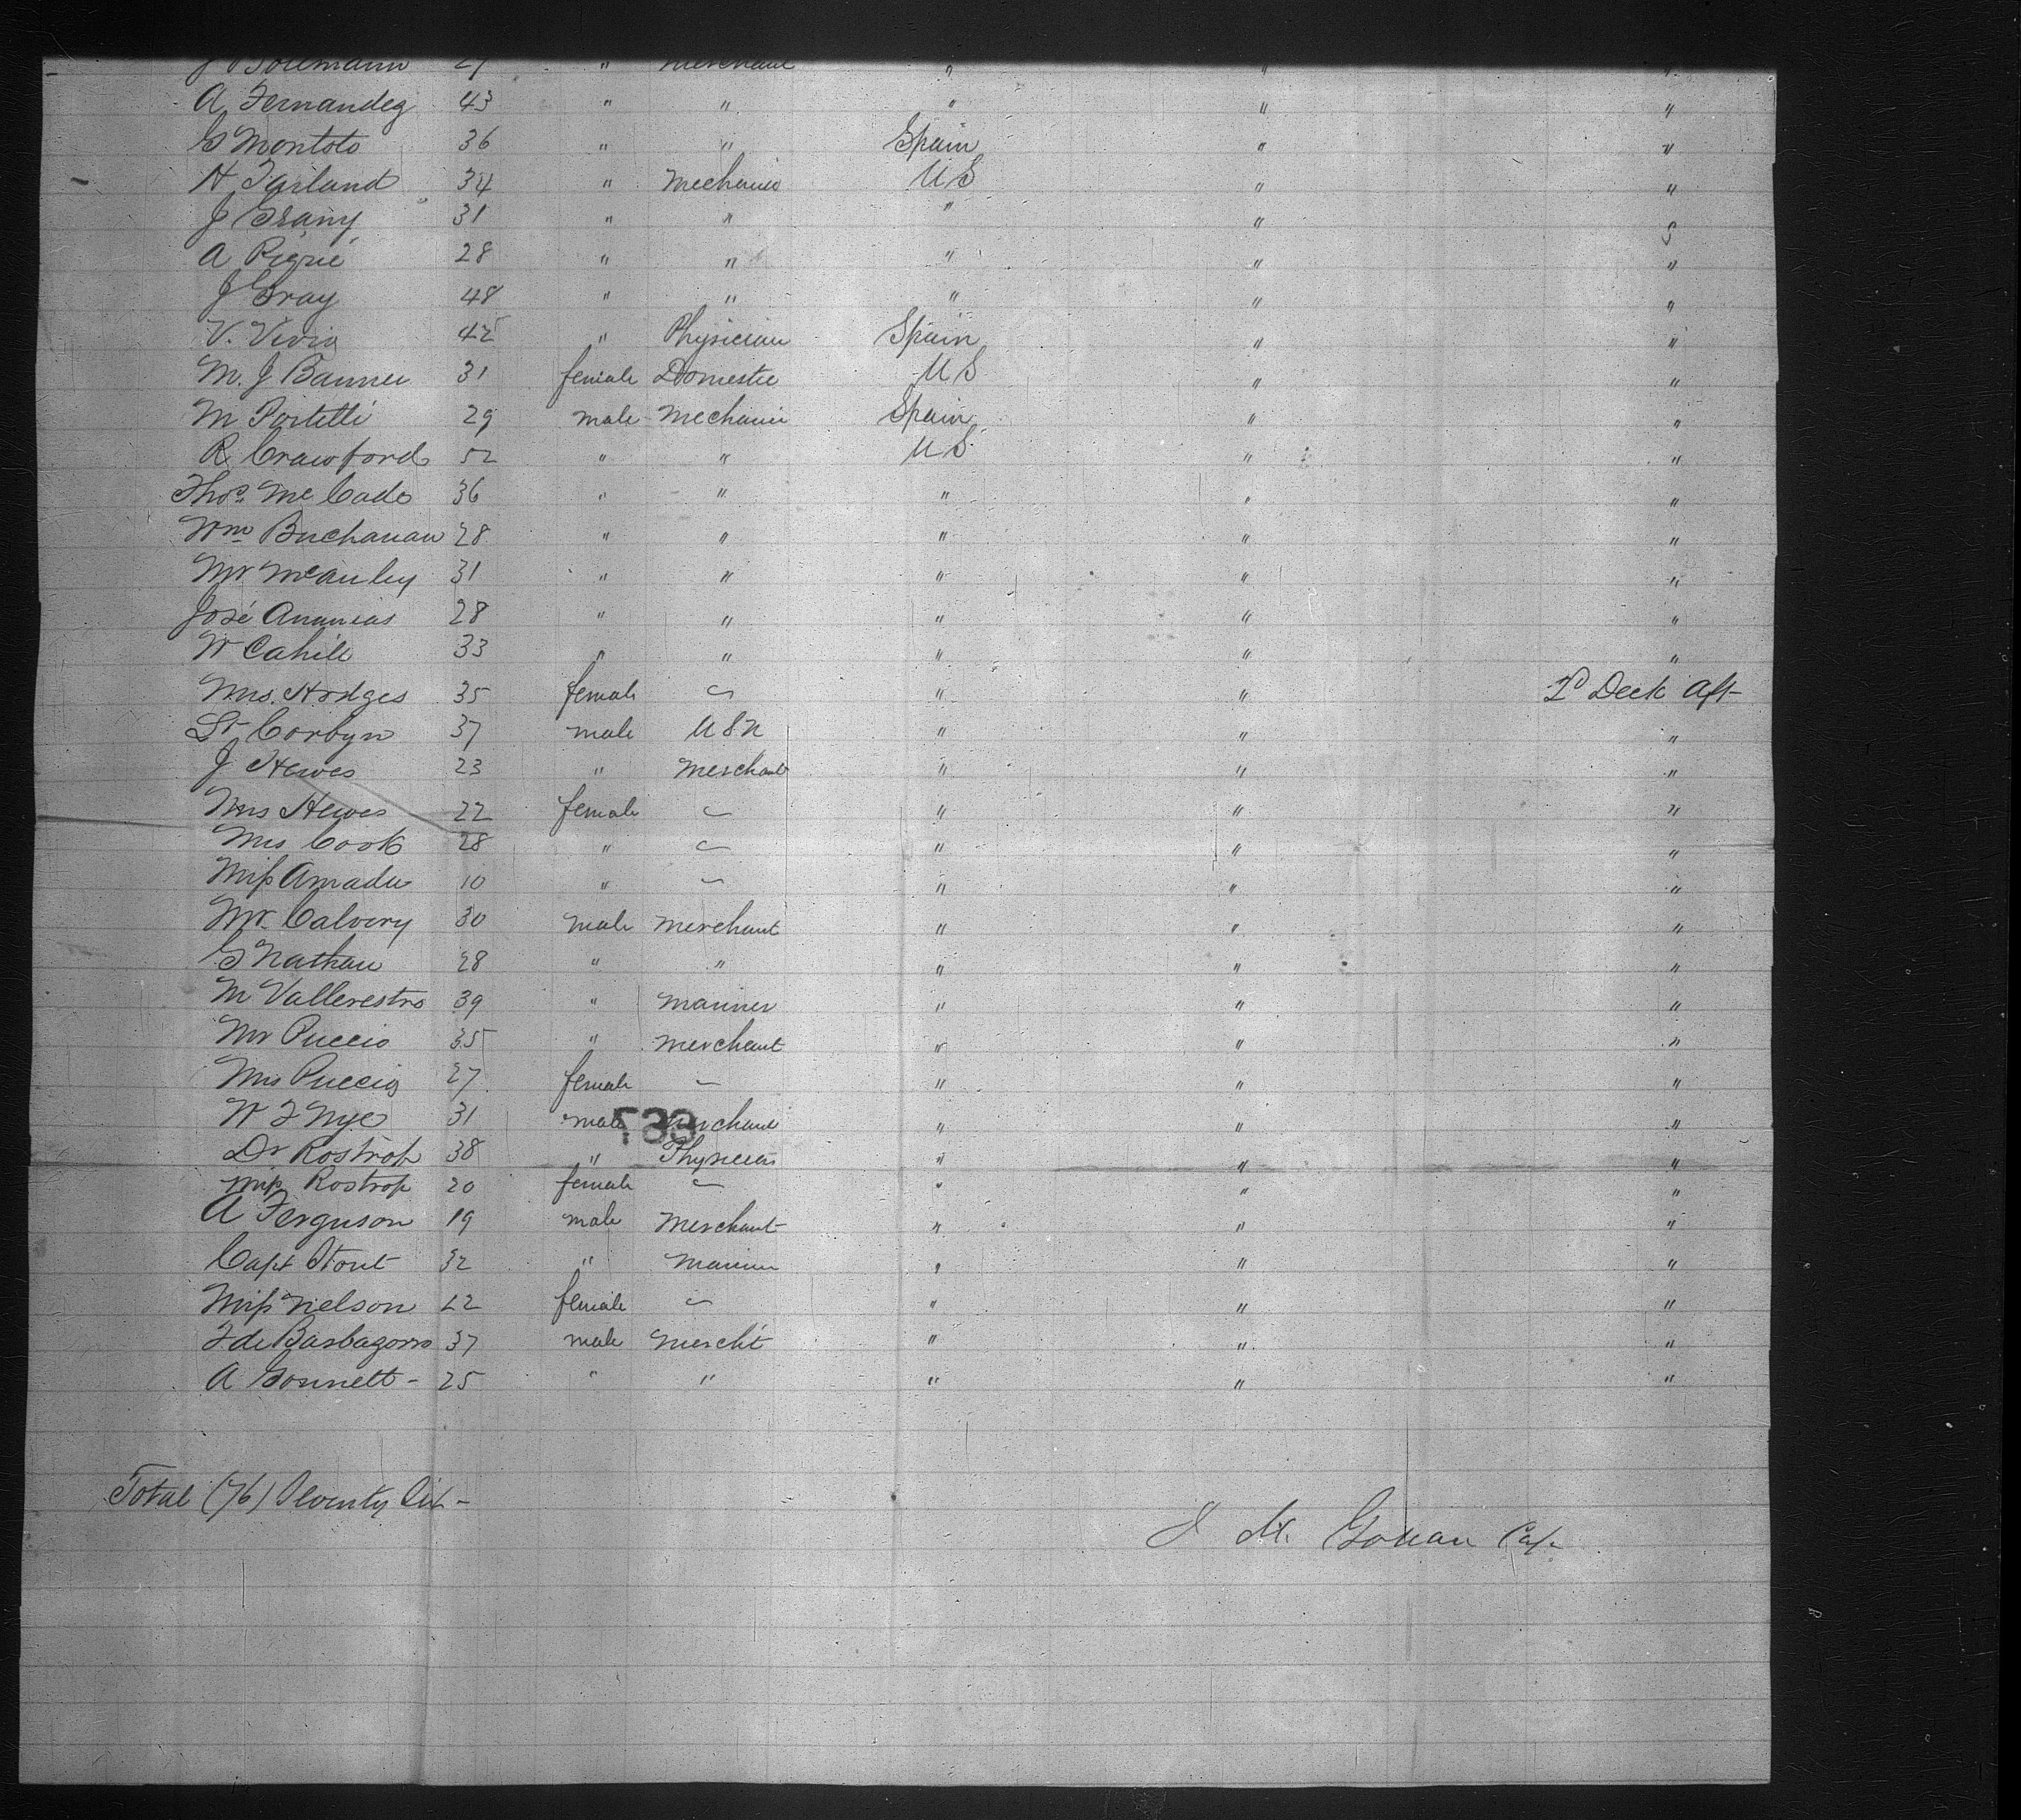 27 " merchant " " "
A Fernandez 43 " " " " "
G Montoto 36 " " Spain " "
H Farland 34 " Mechanic U S " "
J Grany 31 " " " " "
A Riqrie 28 " " " " "
J Gray 48 " " " " "
V. Vivia 42 " Physician Spain " "
M. J Banner 31 female Domestic U S " "
M Portelli 29 male Mechanic Spain " "
R Crawford 52 " " U S " "
Thos. McCade 36 " " " " "
Wm Buchanan 28 " " " " "
Mr McAuley 31 " " " " "
José Ananias 28 " " " " "
W Cahill 33 " " " " "
Mrs. Hodges 35 female — " " Deck Aft
Lt Corbyn 37 male U S N " " "
J Hewes 23 " Merchant " " "
Mrs Hewes 22 female — " " "
Mrs Cook 28 " — " " "
Miss Amadu 10 " — " " "
Mr. Calvery 30 male Merchant " " "
G Nathan 28 " " " " "
M Vallerestro 39 " Mariner " " "
Mr Puccio 35 " Merchant " " "
Mrs Puccio 27 female — " " "
W F Nye 31 male Merchant " " "
Dr Rostrop 38 " Physician " " "
Miss Rostrop 20 female — " " "
A Ferguson 19 male Merchant " " "
Capt Stout 32 " Mariner " " "
Miss Nelson 22 female — " " "
F de Barbagorro 37 male Mercht " " "
A Gonnett - 25 " " " " "
Total (76) Seventy Six -
J M. Gowan Cap.